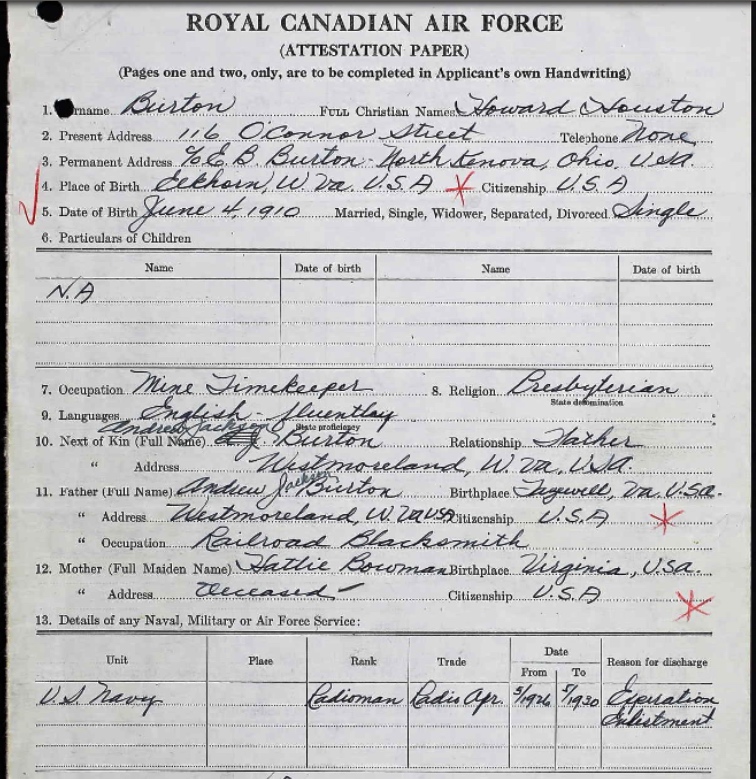 ROYAL CANADIAN AIR FORCE
(ATTESTATION PAPER)
(Pages one and two, only, are to be completed in Applicant's own Handwriting)
1. rname Burton FULL Christian Names Howard Houston
2. Present Address 116 O'Connor Street Telephone None
3. Permanent Address % E. B. Burton - North Kenova, Ohio, U.S.A.
4. Place of Birth Eckhorn, W Va. U.S.A Citizenship U.S.A
5. Date of Birth June 4, 1910 Married, Single, Widower, Separated, Divorced Single
6. Particulars of Children
Name Date of birth Name Date of birth
N.A
7. Occupation Mine Timekeeper 8. Religion Presbyterian
State denomination
9. Languages English - fluentley
State proficiency
Andrew Jackson
10. Next of Kin (Full Name) Burton Relationship Father
" Address Westmoreland, W. Va, USA.
11. Father (Full Name) Andrew Jackson Burton Birthplace Tazewell, Va. U.S.a.
" Address Westmoreland, W. Va USA Citizenship U.S.A
" Occupation Railroad Blacksmith
12. Mother (Full Maiden Name) Hattie Bowman Birthplace Virginia, USa.
" Address Deceased Citizenship U.S.A
13. Details of any Naval, Military or Air Force Service:
Unit Place Rank Trade Date Reason for discharge
From To
U.S. Navy Radioman Radio Opr. 5/1926 5/1930 Expiration
Enlistment